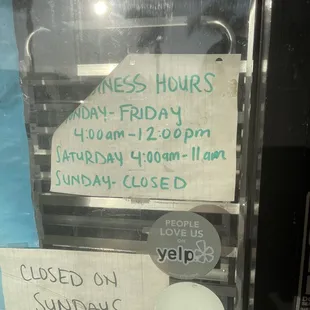 NESS HOURS
NDAY-FRIDAY
4:00am-12:00pm
SATURDAY 4:00am-11am
SUNDAY-CLOSED
PEOPLE
LOVE US
ON
yelp
CLOSED ON
SUNDAYS